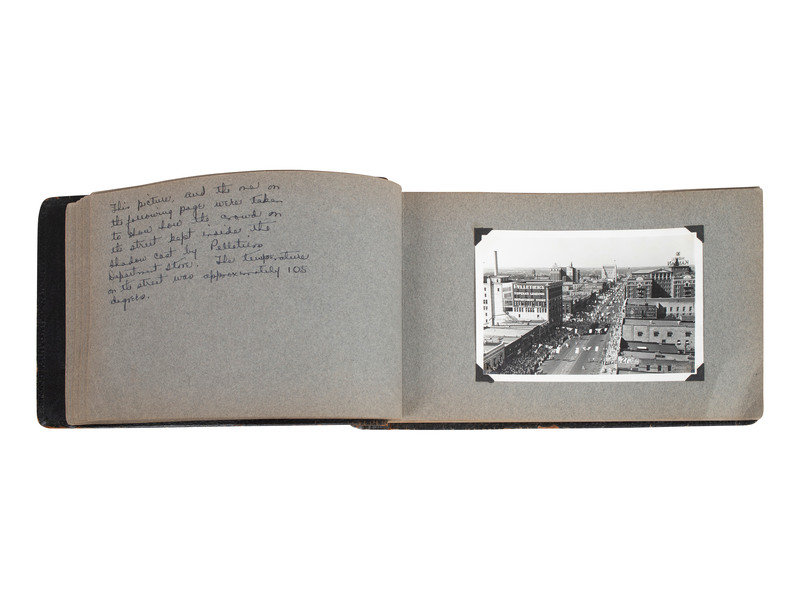 This picture, and the one on
the following page were taken
to show how the crowd on
the street kept inside the
shadow cast by Pelletiers
Department Store. The temperature
on the street was approximately 105
degrees.
PELLETIER'S